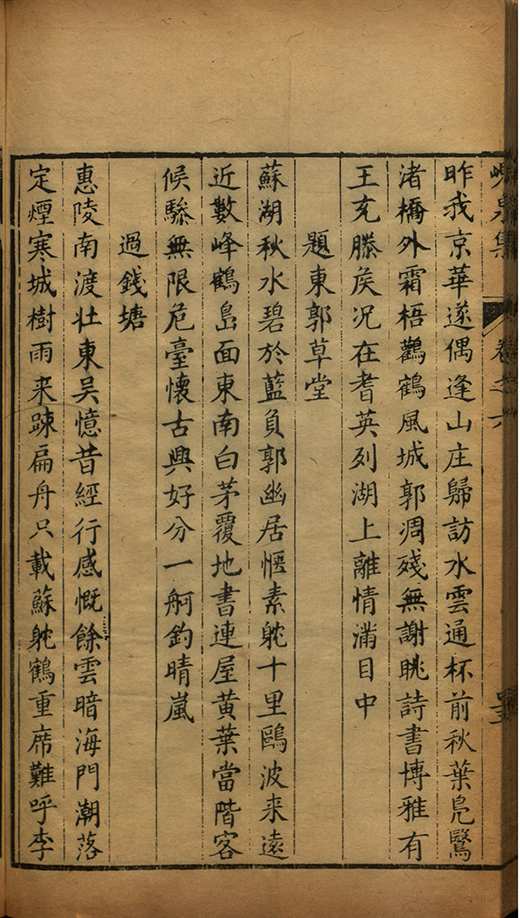 峴泉集 卷之六
昨我京華遂偶逢山庄歸訪水雲通杯前秋葉鳬鷖
渚橋外霜梧鸛鶴風城郭凋殘無謝眺詩書博雅有
王充滕侯况在耆英列湖上離情滿目中
題東郭草堂
蘇湖秋水碧於藍負郭幽居愜素躭十里鷗波来遠
近數峰鶴島面東南白茅覆地書連屋黄葉當階客
候驂無限危臺懷古興好分一舸釣晴嵐
過錢塘
惠陵南渡壮東吴憶昔經行感慨餘雲暗海門潮落
定煙寒城樹雨来踈扁舟只載蘇躭鶴重席難呼李